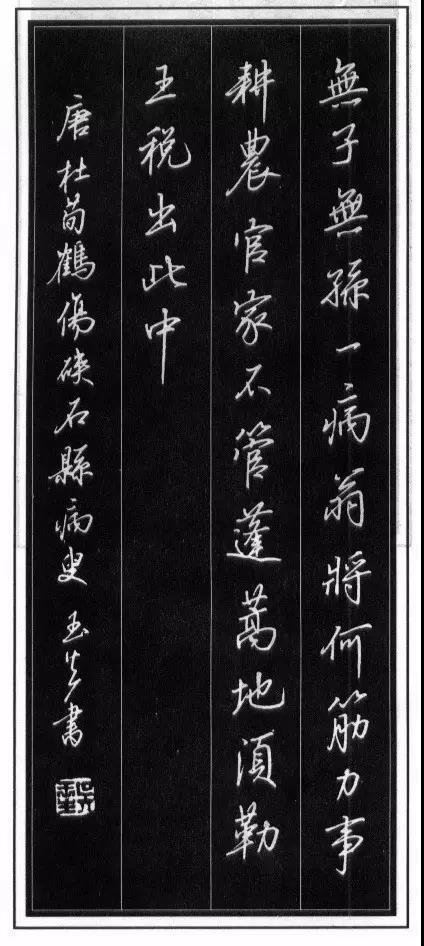 無子無孫一病翁將何筋力事
耕農官家不管蓬蒿地須勒
王税出此中
唐杜荀鶴傷硤石縣病叟 玉書